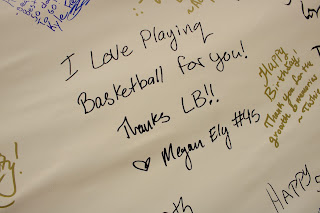 I Love Playing
Basketball for you!
Thanks LB!!
♡ Megan Ely #45
Happy
Birthday!
Thank you for the
growth & memories
~ Taylor
Happy